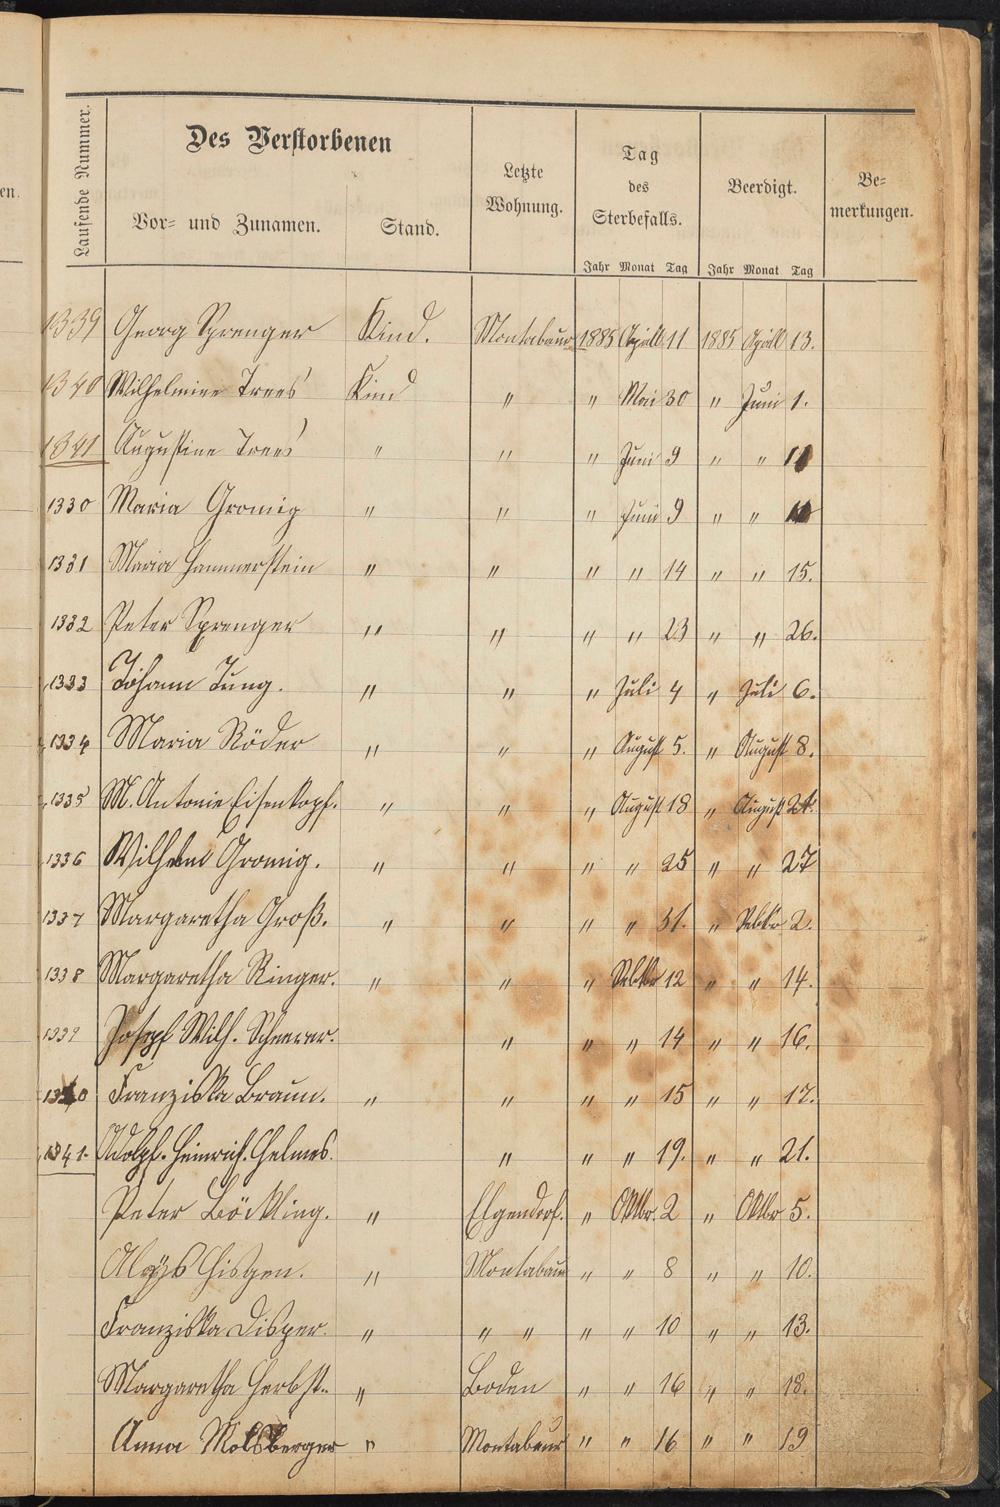 en.
Laufende Nummer.
Des Verstorbenen
Vor- und Zunamen.
Stand.
Letzte
Wohnung.
Tag
des
Sterbefalls.
Beerdigt.
Be-
merkungen.
Jahr Monat Tag Jahr Monat Tag
1339 Georg Sprenger Kind. Montabaur 1885 April 11 1885 April 13.
1340 Wilhelmine Trees Kind " " Mai 30 " Juni 1.
1341 Augustine Trees " " " Juni 9 " " 11
1330 Maria Gromig " " " Juni 9 " "
1331 Maria Hammerstein " " " " 14 " " 15.
1332 Peter Sprenger " " " " 23 " " 26.
1333 Johann Jung. " " " Juli 4 " Juli 6.
1334 Maria Röder " " " August 5. " August 8.
1335 M. Antonie Eisenkopf. " " " August 18 " August 21.
1336 Wilhelm Gromig. " " " " 25 " " 27
1337 Margaretha Groß. " " " " 31. " Sebtbr 2.
1338 Margaretha Ringer. " " " Sebtbr 12 " " 14.
1339 Joseph Wilh. Scheerer. " " " 14 " " 16.
1340 Franziska Braun. " " " " 15 " " 17.
1341. Adolph. Heinrich. Helmes. " " " 19. " " 21.
Peter Böckling. " Elgendorf. " Oktbr. 2 " Oktbr 5.
Aloys Hisgen. " Montabaur " " 8 " " 10.
Franziska Disper. " " " " " 10 " " 13.
Margaretha Herbst. " Boden " " 16 " " 18.
Anna Molsberger " Montabaur " " 16 " " 19